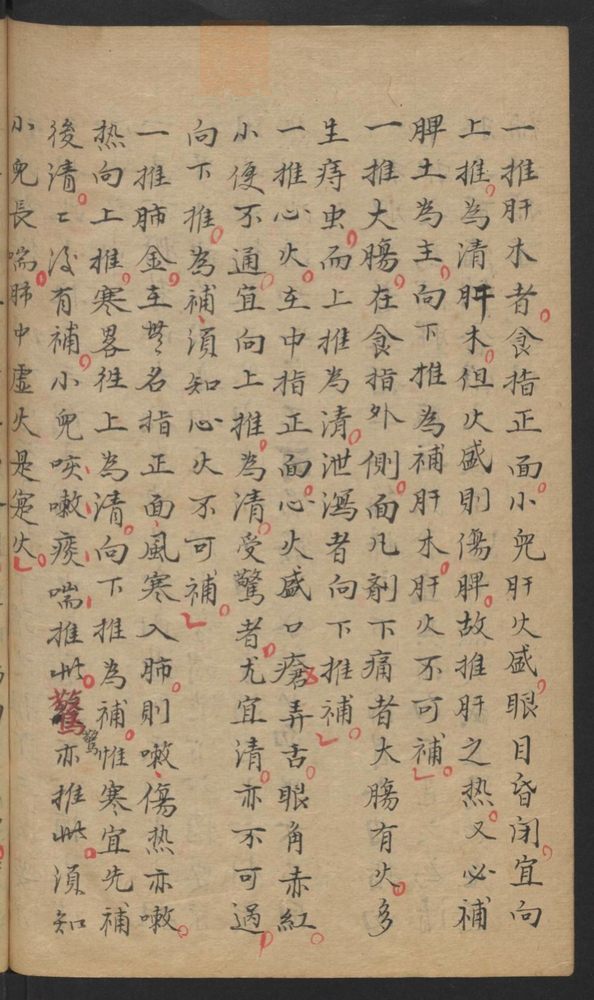 一推肝木者食指正面小兒肝火盛眼目昏闭宜向
上推為清肝木但火盛則傷脾故推肝之热又必補
脾土為主向下推為補肝木肝火不可補
一推大膓在食指外側面凡劑下痛者大膓有火多
生痔虫而上推為清泄瀉者向下推補
一推心火在中指正面心火盛口瘡弄舌眼角赤紅
小便不通宜向上推為清受驚者尤宜清亦不可過
向下推為補須知心火不可補
一推肺金在無名指正面風寒入肺則嗽傷热亦嗽
热向上推寒畧徃上為清向下推為補惟寒宜先補
後清〻後有補小兒咳嗽痰喘推此驚亦推此須知
驚
小兒長喘肺中虚火是寔火